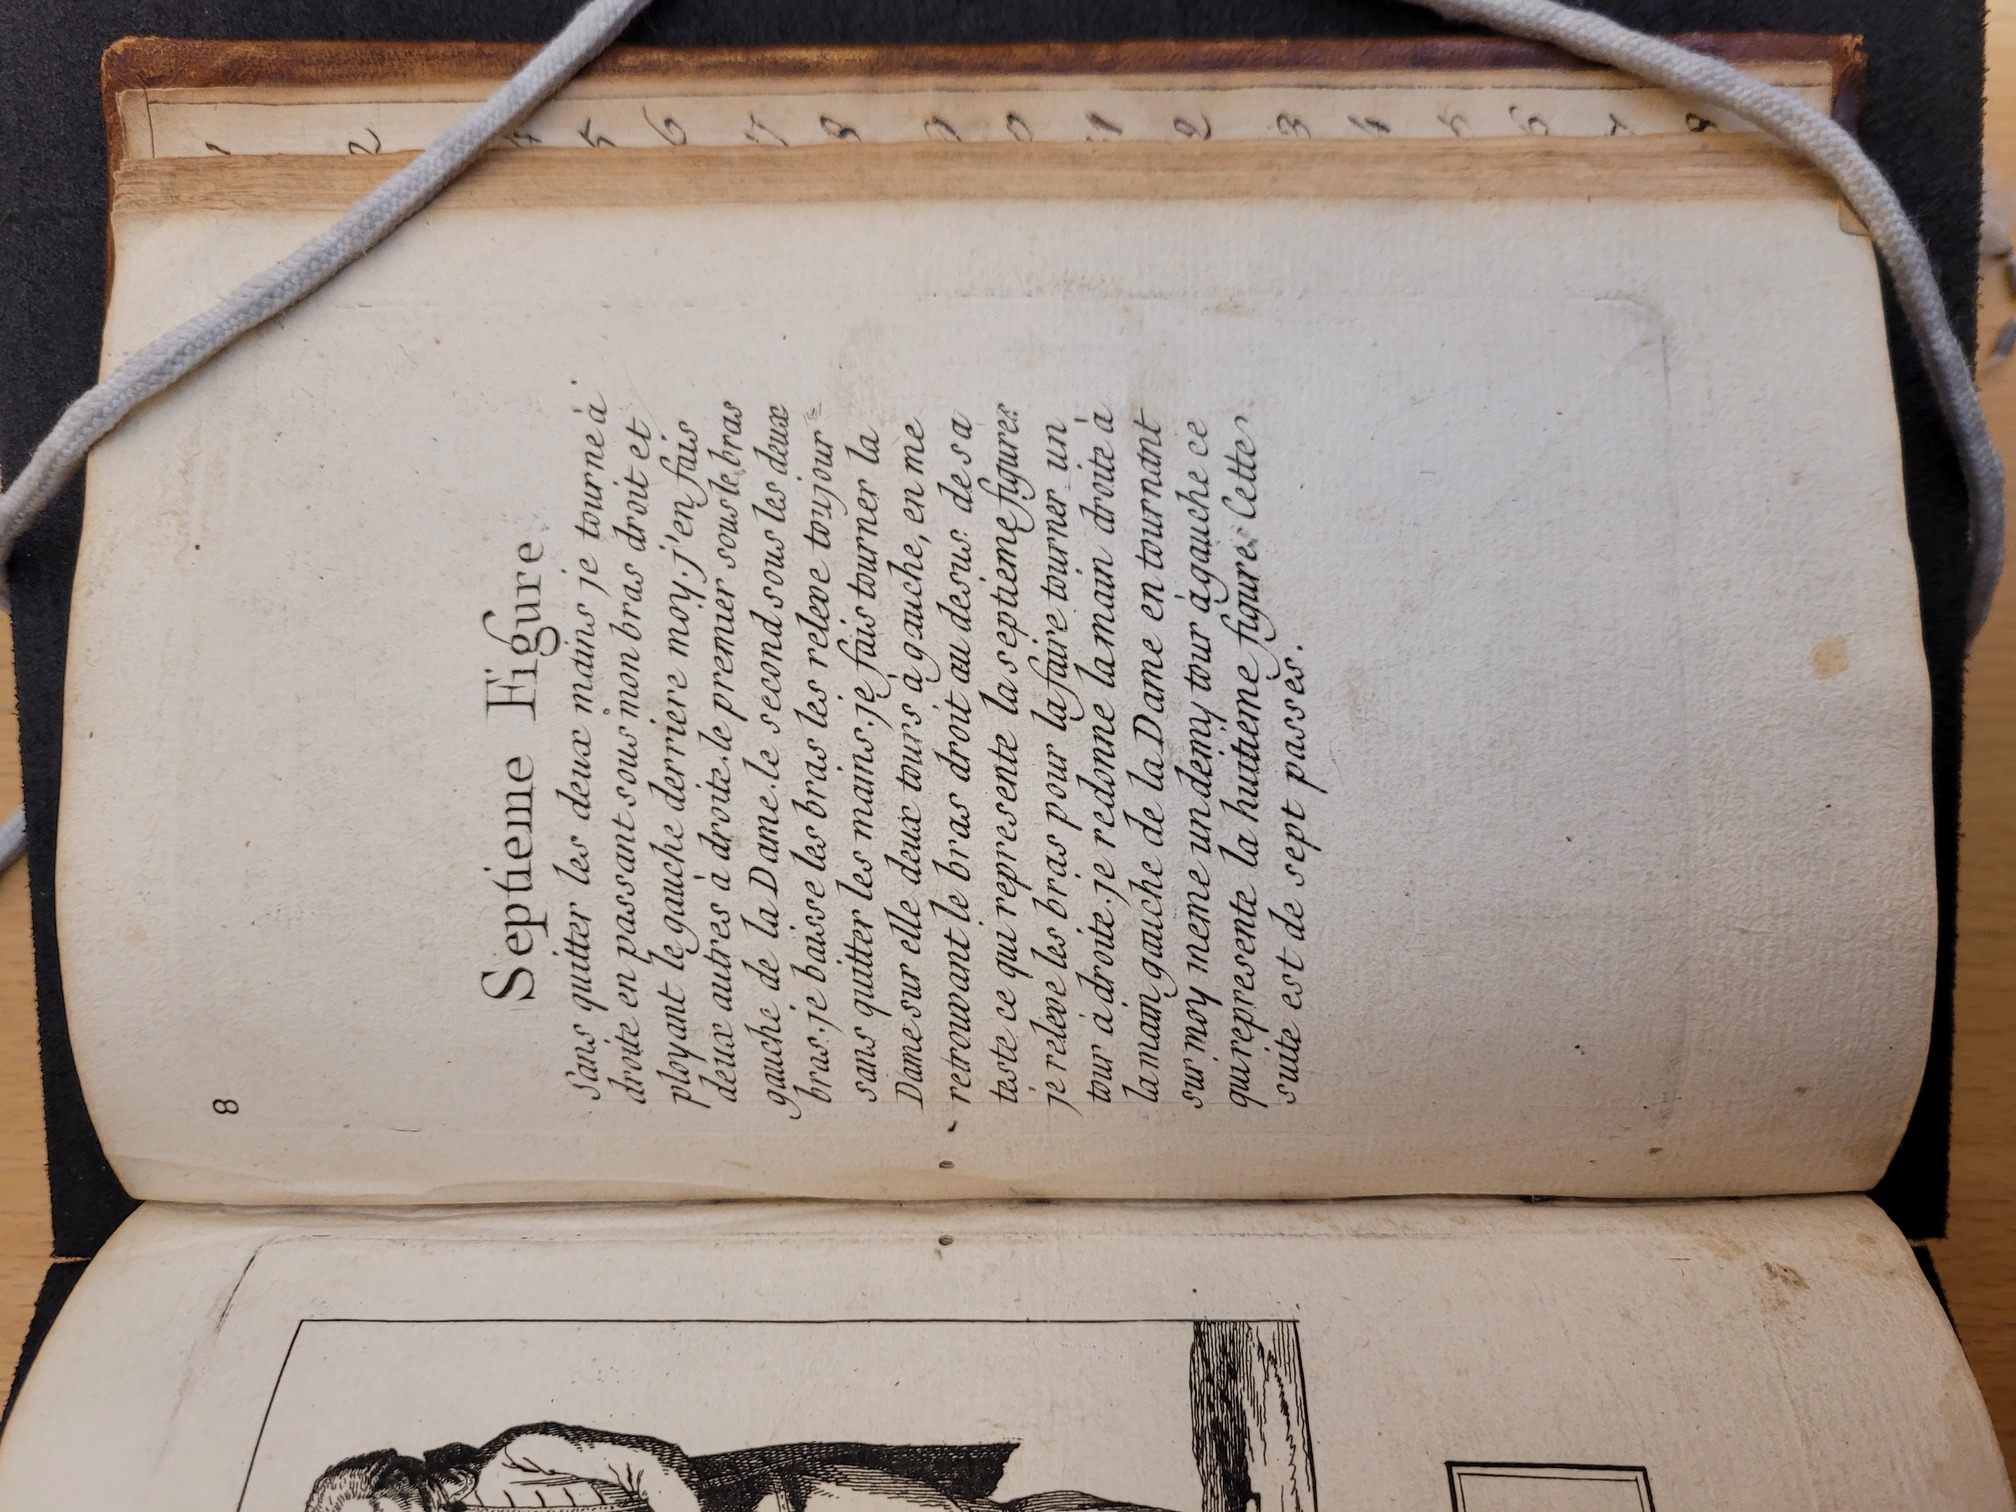 8
Septieme Figure
Sans quitter les deux mains je tourne à
droite en passant sous mon bras droit et
ployant le gauche derriere moy. j'en fais
deux autres à droite. le premier sous le bras
gauche de la Dame. le second sous les deux
bras. je baisse les bras les releve toujour
sans quitter les mains. je fais tourner la
Dame sur elle deux tours à gauche, en me
retrouvant le bras droit au desus de sa
teste ce qui represente la septieme figure.
je releve les bras pour la faire tourner un
tour à droite. je redonne la main droite à
la main gauche de la Dame en tournant
sur moy meme un demy tour à gauche ce
qui represente la huitieme figure. Cette
suite est de sept passes.
1
2
4
5
6
7
8
9
0
1
2
3
4
5
6
7
8